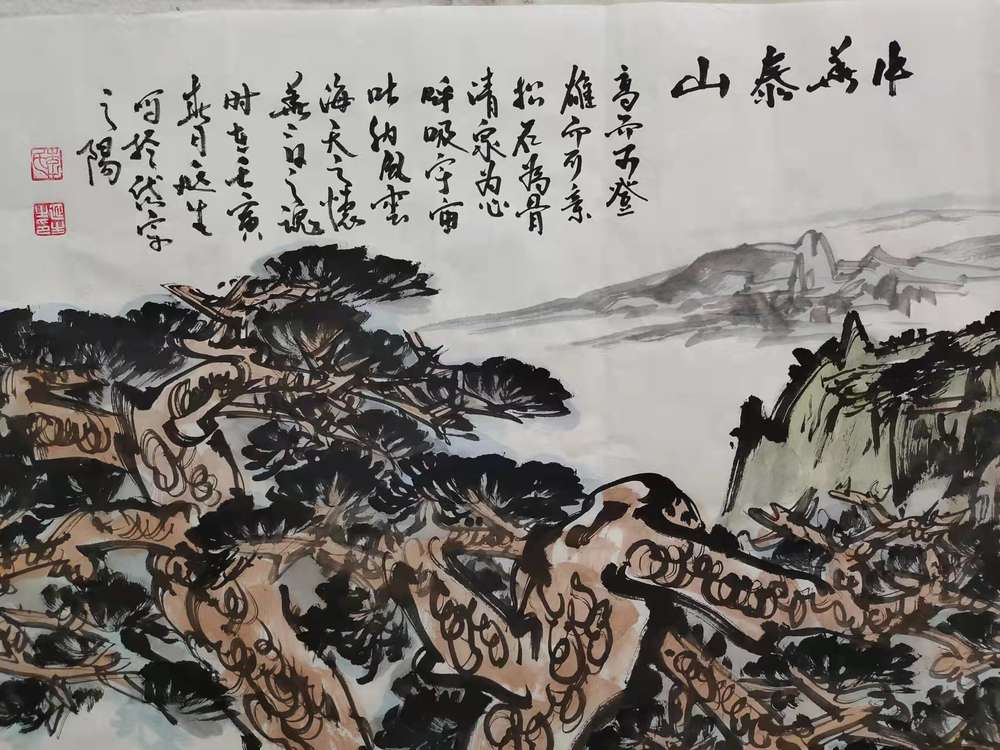 中華泰山
高而可登
雄而可亲
松石为骨
清泉为心
呼吸宇宙
吐纳風雲
海天之懷
華夏之魂
时在壬寅
春月
写於岱宗
之陽